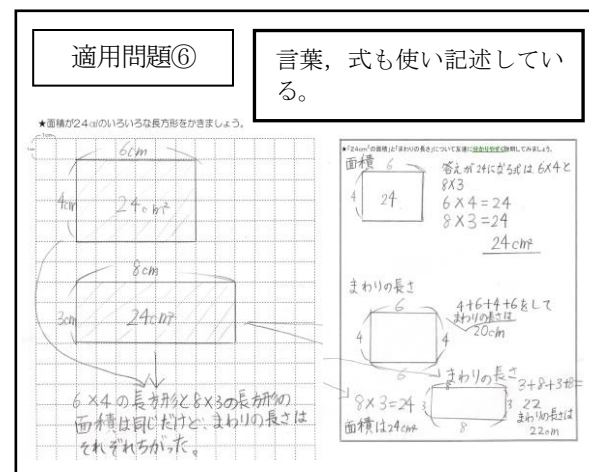 適用問題⑥
言葉，式も使い記述してい
る。
★面積が24㎠のいろいろな長方形をかきましょう。
1cm
6cm
4cm
24cm²
8cm
3cm
24cm²
6×4の長方形と8×3の長方形の
面積は同じだけど、まわりの長さは
それぞれちがった。
★「24cm²の面積」と「まわりの長さ」について友達に分かりやすく説明してみましょう。
面積
6
4
24
答えが24になる式は6×4と
8×3
6×4=24
8×3=24
24cm²
まわりの長さ
6
4
4
6
4+6+4+6をして
まわりの長さは
20cm
まわりの長さ
8×3=24
面積は24cm²
8
3
3
8
3+8+3+8=
22
まわりの長さは
22cm